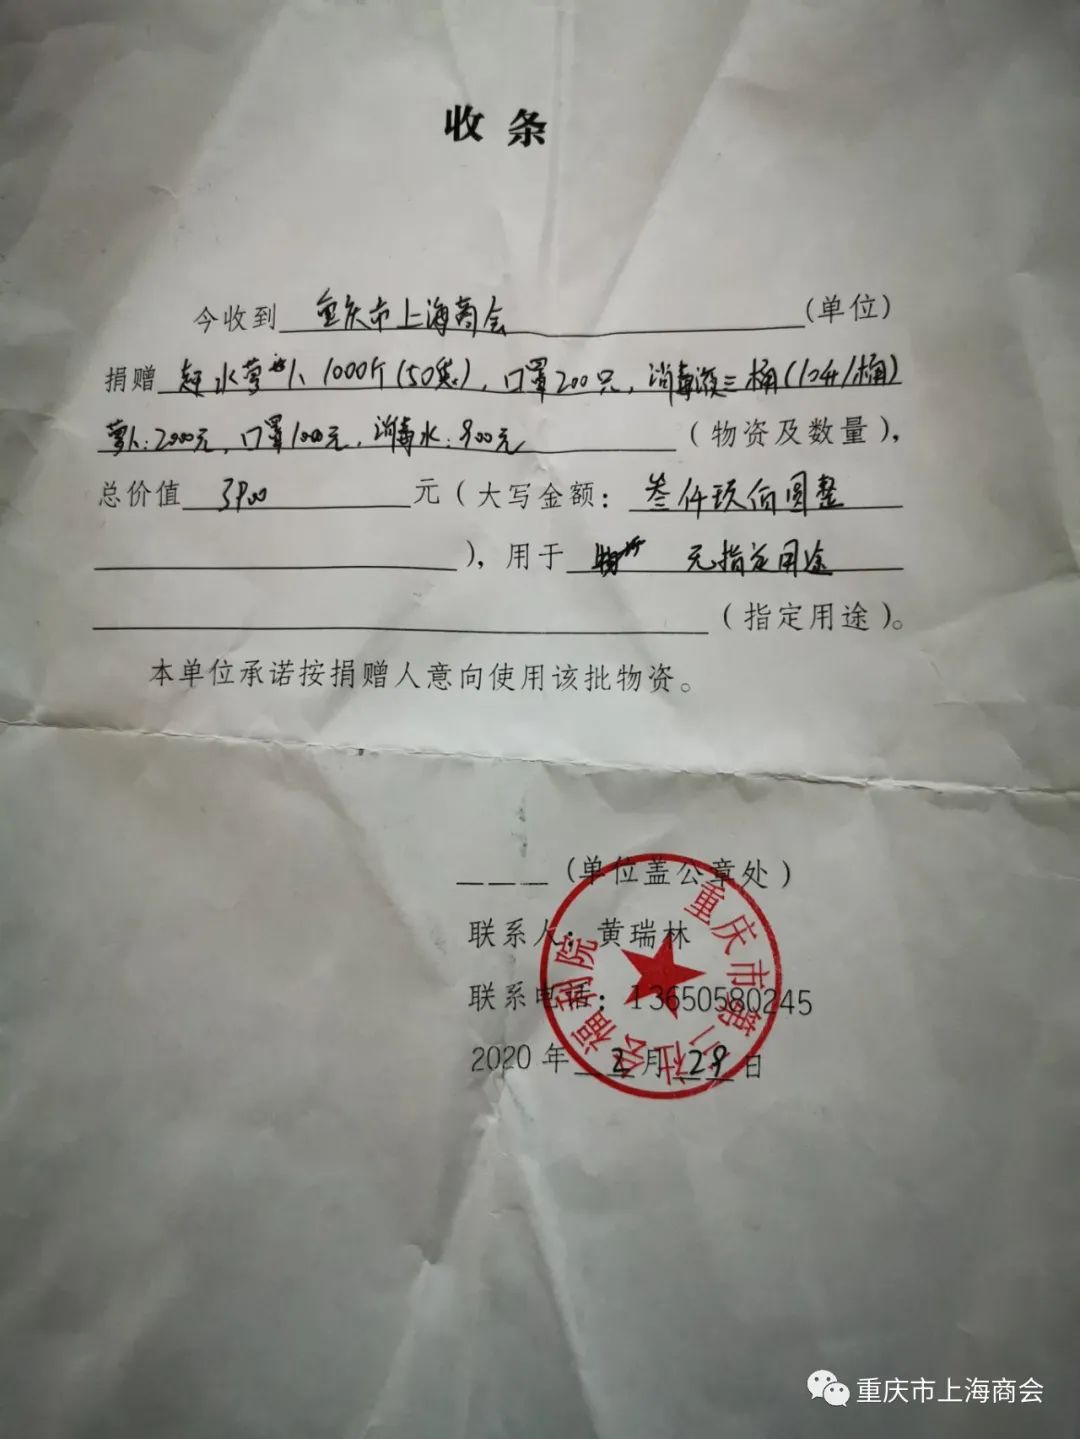 收条
今收到重庆市上海商会(单位)
捐赠赶水萝卜1000斤(50袋),口罩200只,消毒液三桶(10升/桶)
萝卜:2000元,口罩1000元,消毒水:900元(物资及数量),
总价值3900元(大写金额:叁仟玖佰圆整
),用于 无指定用途
(指定用途)。
本单位承诺按捐赠人意向使用该批物资。
(单位盖公章处)
联系人:黄瑞林
联系电话:13650580245
2020年2月29日
重庆市第二社会福利院
重庆市上海商会